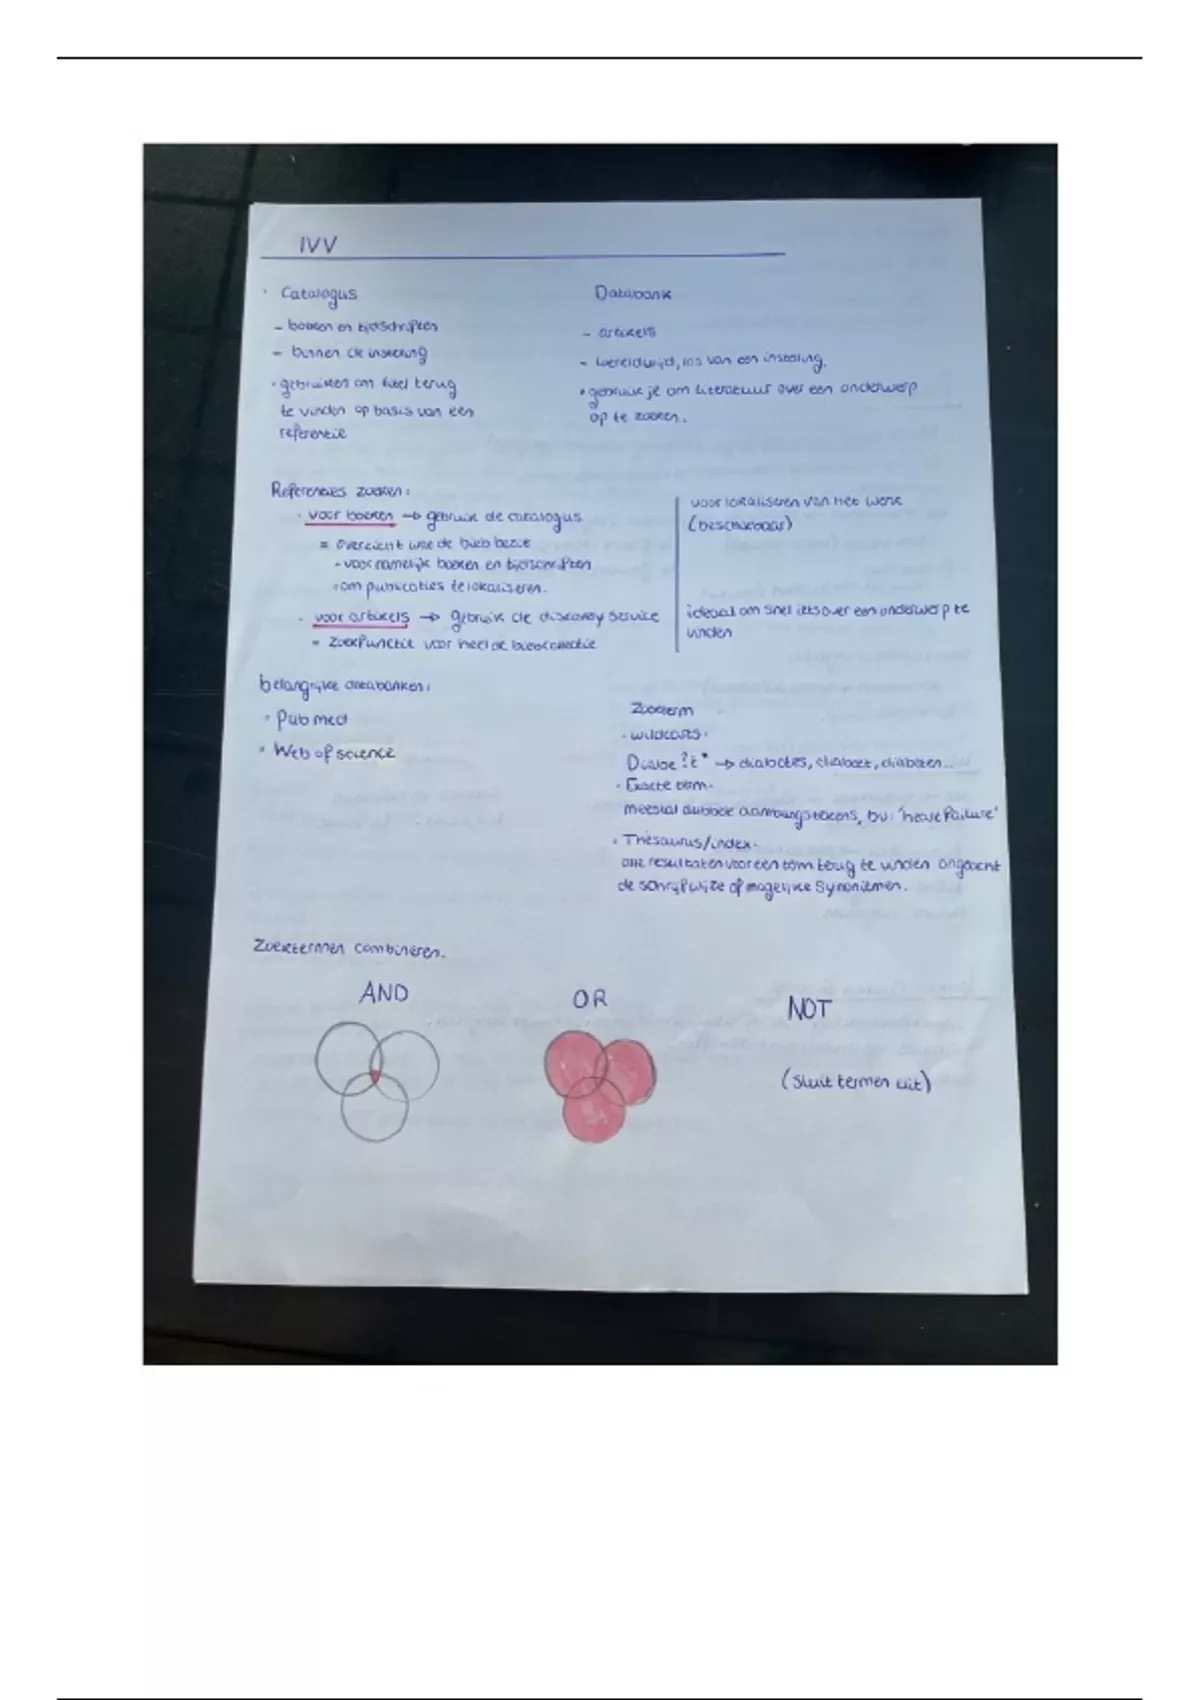 IVV
· Catalogus
- boeken en tijdschriften
- binnen de instelling
· gebruiken om titel terug
te vinden op basis van een
referentie
Databank
- artikels
- wereldwijd, los van een instelling.
· gebruik je om literatuur over een onderwerp
op te zoeken.
Referenties zoeken:
· voor boeken → gebruik de catalogus
= overzicht wat de bieb bezit
· voornamelijk boeken en tijdschriften
· om publicaties te lokaliseren.
voor lokaliseren van het werk
(beschikbaar)
· voor artikels → gebruik de discovery service
= zoekfunctie voor heel de biebcollectie
ideaal om snel iets over een onderwerp te
vinden
belangrijke databanken:
· Pubmed
· Web of science
Zoekterm
· wildcards·
Diabe?t* → diabetes, diabeet, diabeten...
· Exacte term·
meestal dubbele aanhalingstekens, bv: "heart failure"
· Thesaurus/index·
alle resultaten voor een term terug te vinden ongeacht
de schrijfwijze of mogelijke synoniemen.
Zoektermen combineren.
AND
OR
NOT
(sluit termen uit)